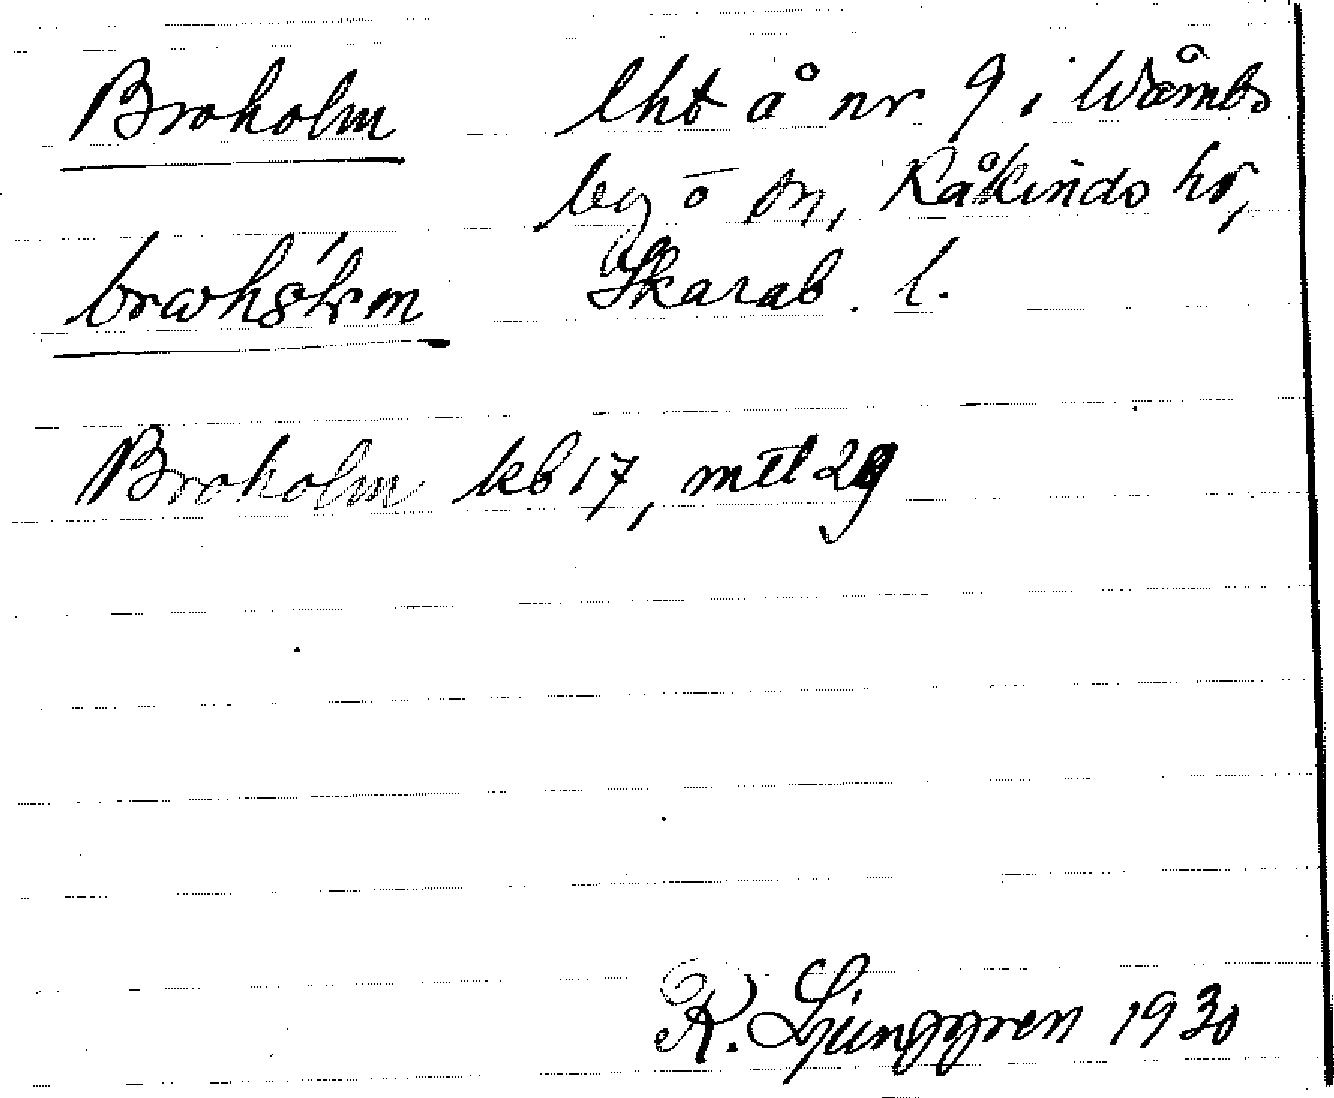 Broholm lht å nr 9 i Wåmbs
by o sn, Kåkinds hr,
Skarab. l.
Broholm kb 17, mtl 29
K. Ljunggren 1930